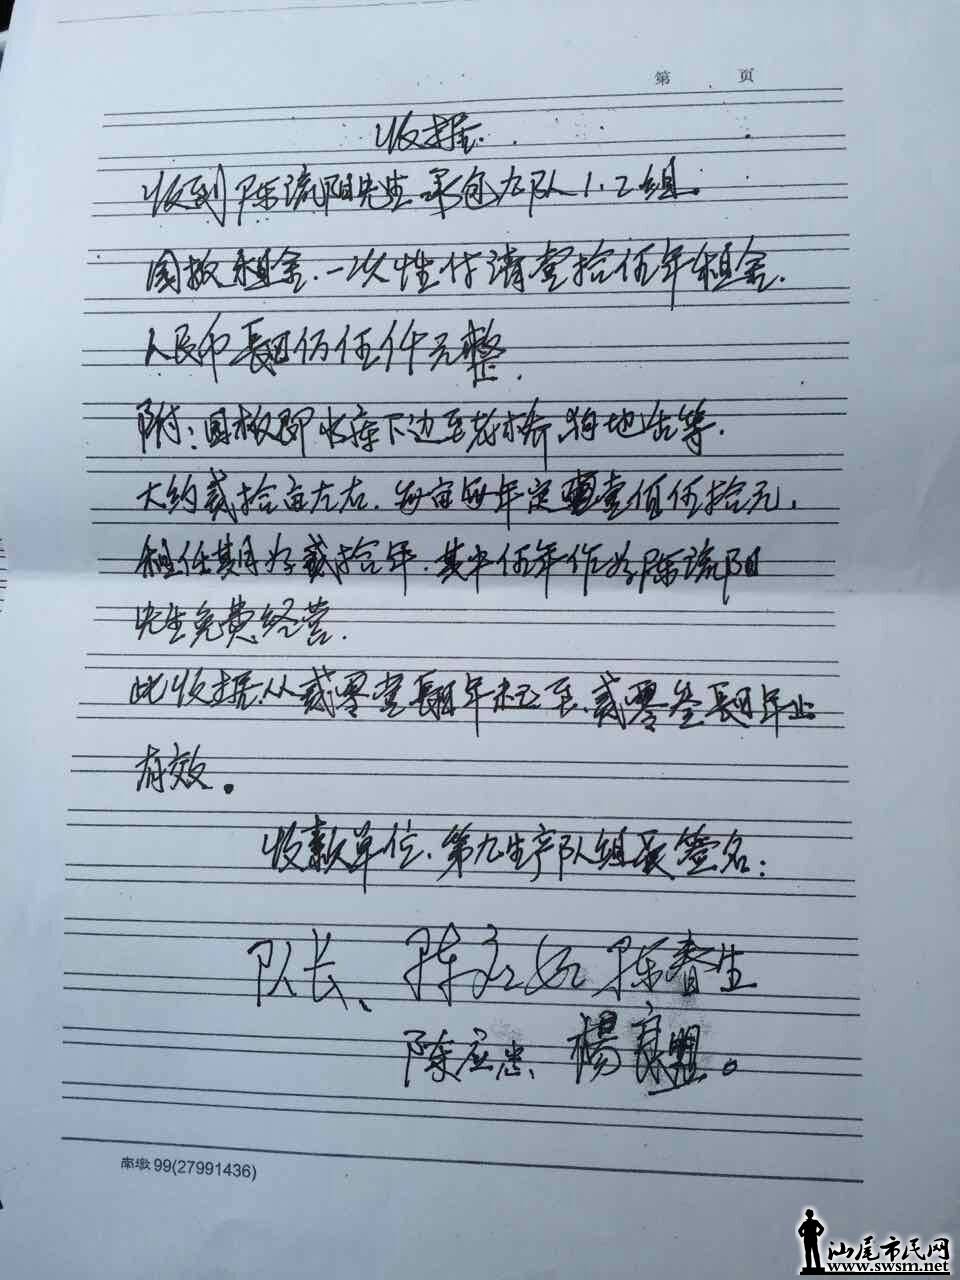 第 页
收据.
收到陈流阳先生承包九队1.2组。
国板租金.一次性付清壹拾伍年租金.
人民币肆万伍仟元整.
附:国板即水库下边至老桥
大约贰拾亩左右.每亩每年定壹佰伍拾元,
租任期为贰拾年.其中伍年作为陈流阳
先生免费经营.
此收据从贰零壹肆年起至贰零叁肆年止
有效。
收款单位、第九生产队组长签名:
队长、陈 陈春生
陈应忠、楊良盟。
99(27991436)
汕尾市民网
www.swsm.net